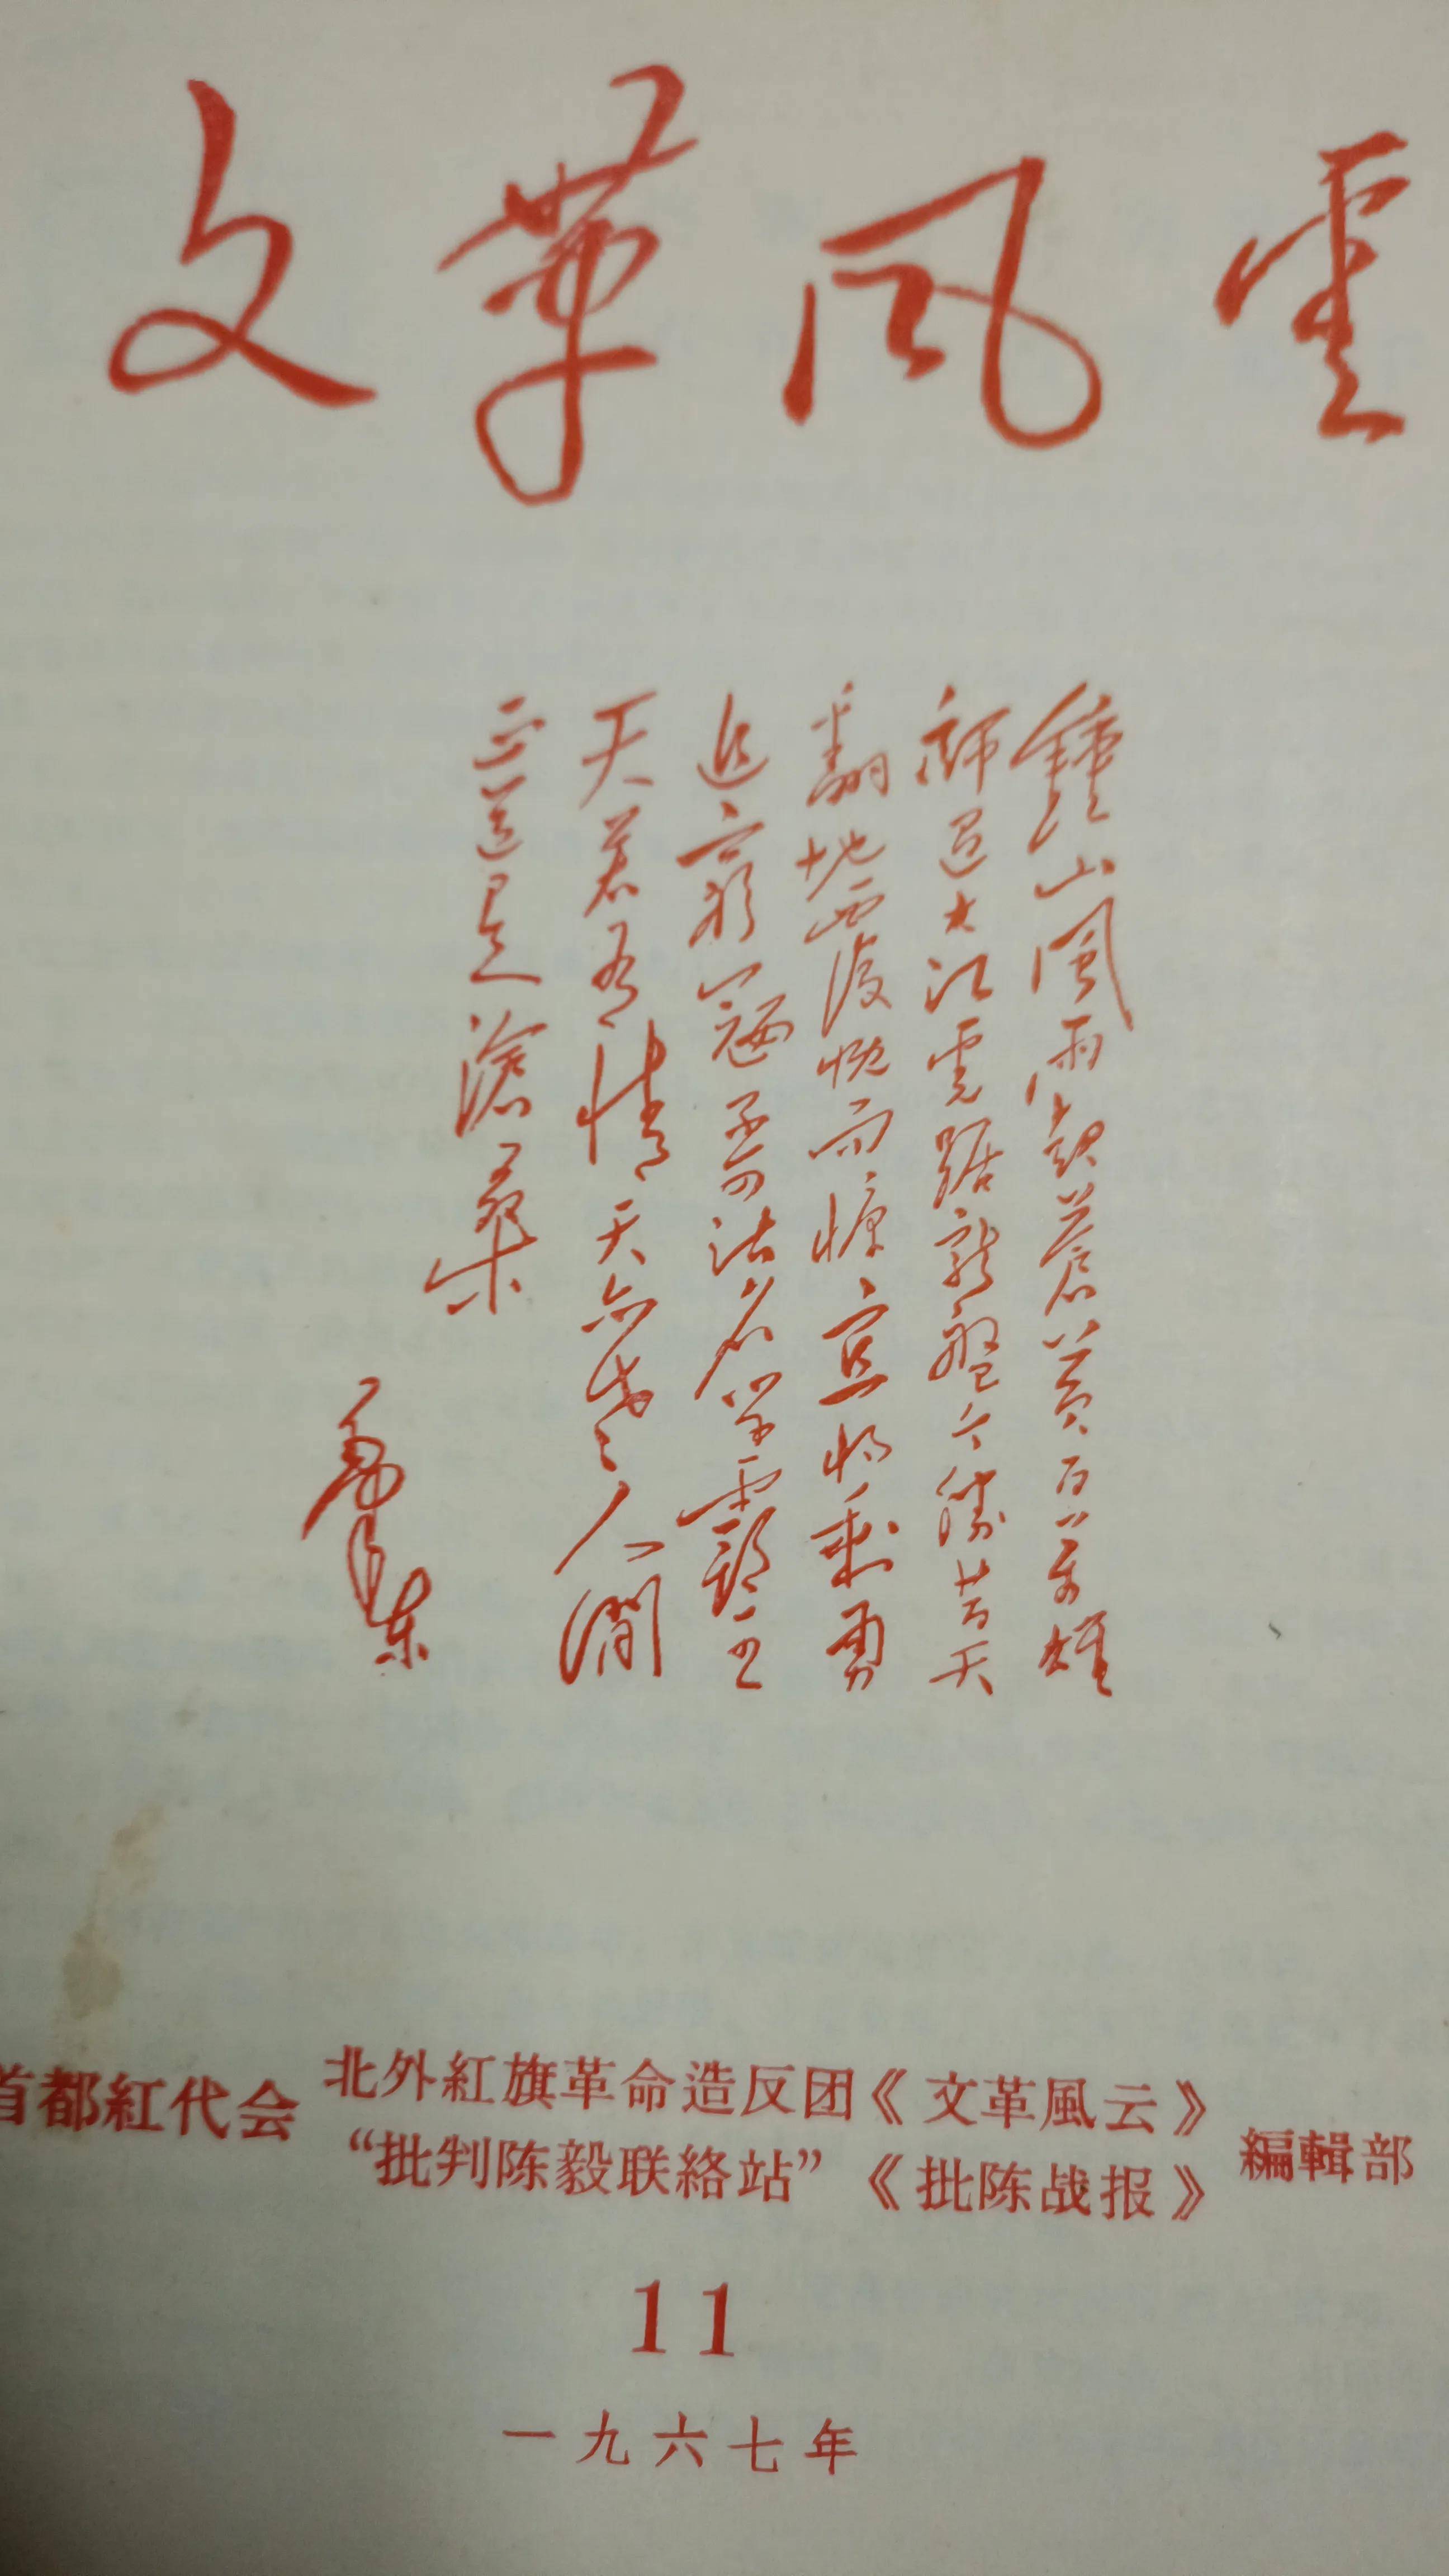 文革风雲
鍾山風雨起蒼黄百万雄
師过大江虎踞龍盤今勝昔天
翻地覆慨而慷宜将剩勇
追窮寇不可沽名学霸王
天若有情天亦老人間
正道是滄桑
毛澤东
首都紅代会
北外紅旗革命造反团《文革風云》
“批判陈毅联絡站”《批陈战报》
編輯部
11
一九六七年